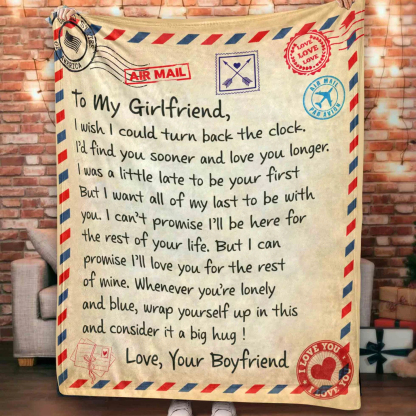 AIR MAIL
LOVE
LOVE
LOVE
AIR MAIL
PAR AVION
To My Girlfriend,
I wish I could turn back the clock.
I'd find you sooner and love you longer.
I was a little late to be your first
But I want all of my last to be with
you. I can't promise I'll be here for
the rest of your life. But I can
promise I'll love you for the rest
of mine. Whenever you're lonely
and blue, wrap yourself up in this
and consider it a big hug !
Love, Your Boyfriend
I LOVE YOU
I LOVE YOU